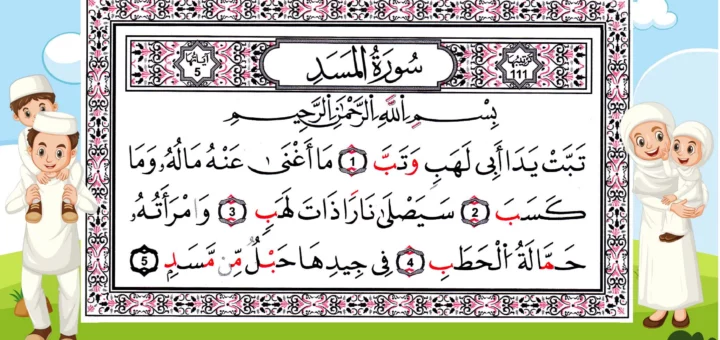 آيَاتُهَا 5
سُورَةُ المَسَدِ
تَرْتِيبُهَا 111
بِسْمِ اللَّهِ الرَّحْمَٰنِ الرَّحِيمِ
تَبَّتْ يَدَا أَبِي لَهَبٍ وَتَبَّ 1 مَا أَغْنَىٰ عَنْهُ مَالُهُۥ وَمَا
كَسَبَ 2 سَيَصْلَىٰ نَارًا ذَاتَ لَهَبٍ 3 وَامْرَأَتُهُۥ
حَمَّالَةُ الْحَطَبِ 4 فِي جِيدِهَا حَبْلٌ مِّن مَّسَدٍ 5